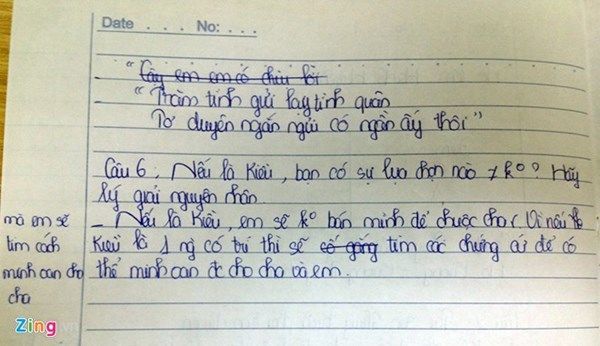 Date . . . No: . . .
"Cậy em em có chịu lời
"Trăm tình gửi lạy tình quân
Tơ duyên ngắn ngủi có ngần ấy thôi"
Câu 6: Nếu là Kiều, bạn có sự lựa chọn nào ≠ k°? Hãy
lý giải nguyên nhân
- Nếu là Kiều, em sẽ k° bán mình để chuộc cha. Vì nếu
Kiều là 1 ng có trí thì sẽ cố gắng tìm các chứng cứ để có
thể minh oan đc cho cha và em.
mà em sẽ
tìm cách
minh oan cho
cha
Zing.vn